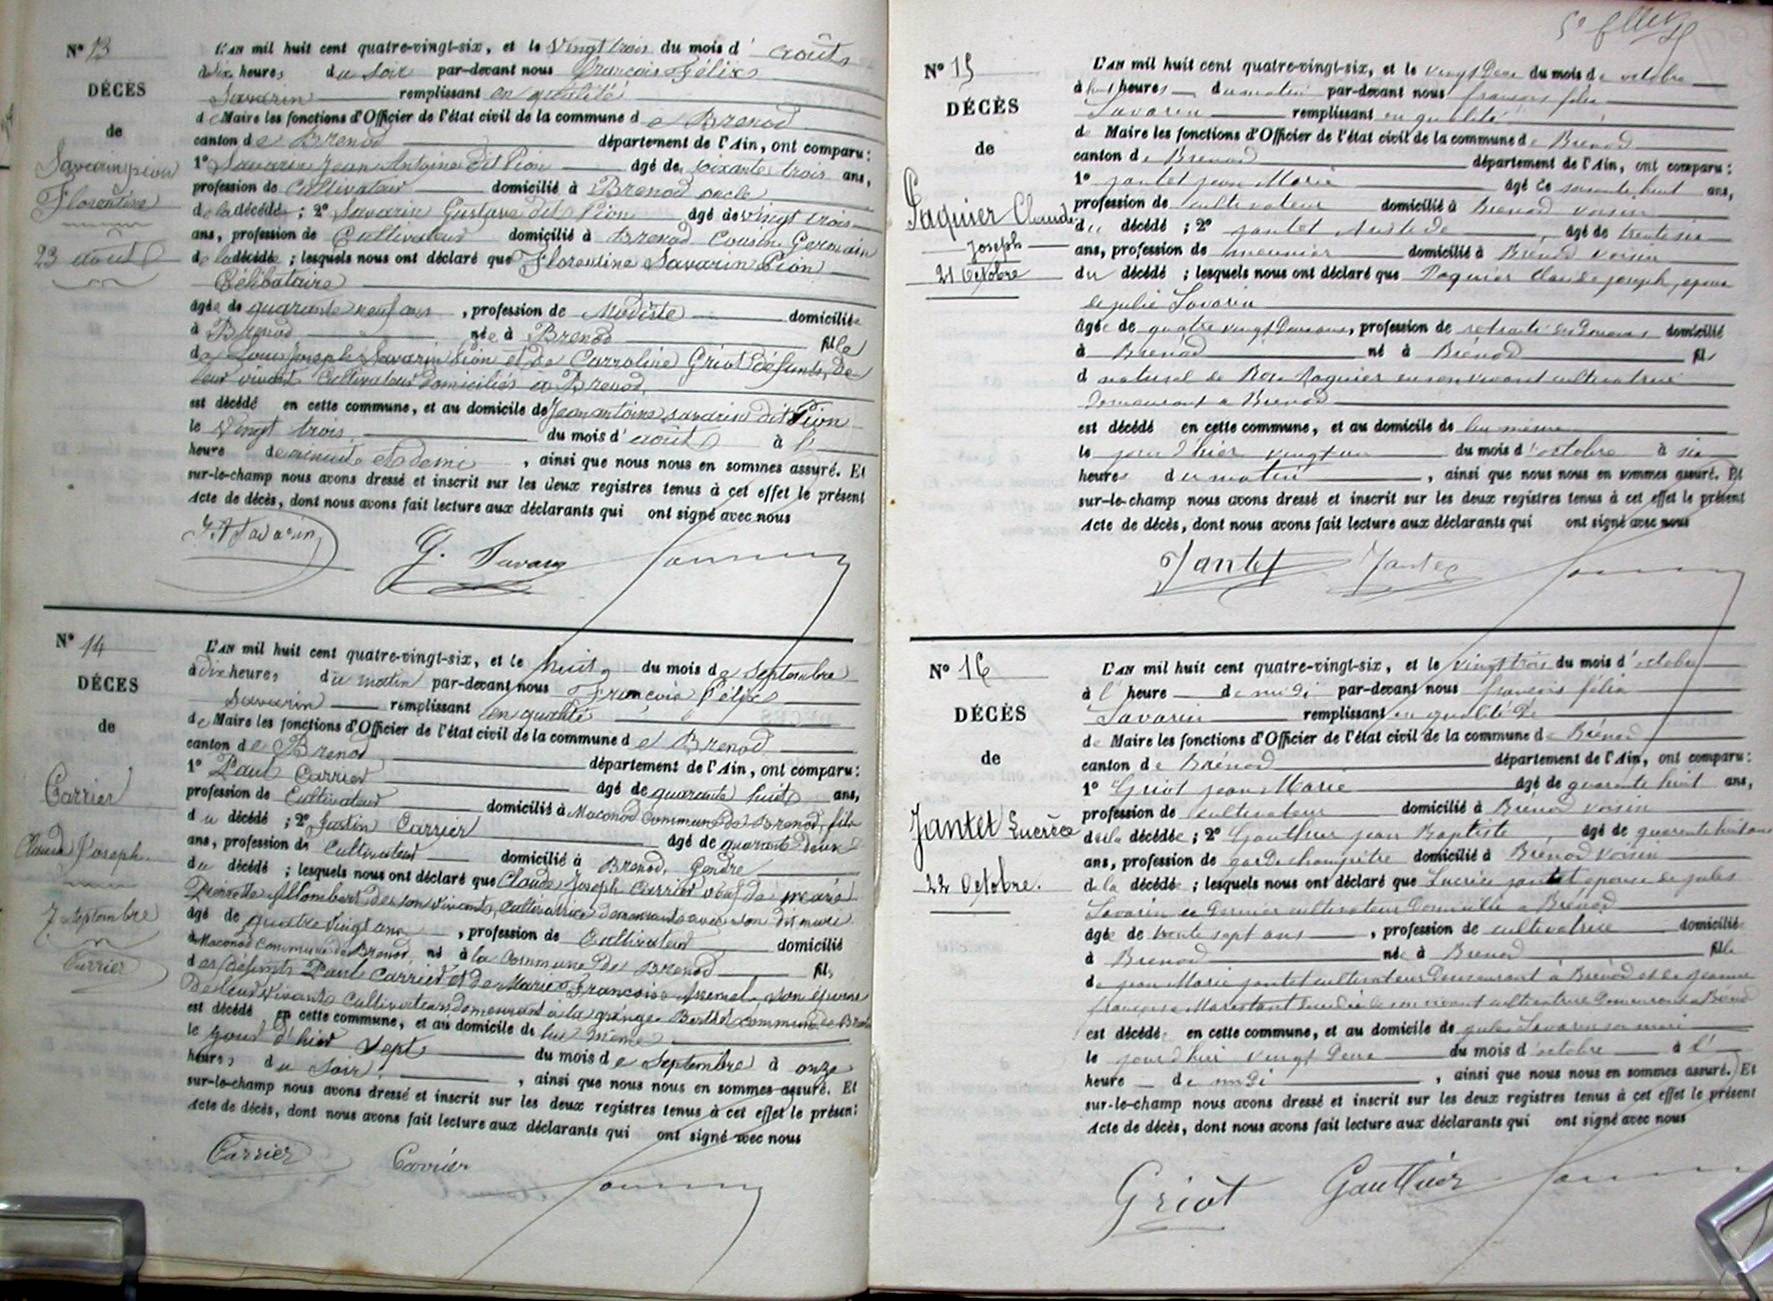 N° 13
DÉCÈS
de
Savarin pion
Florentine
23 août
L'AN mil huit cent quatre-vingt-six, et le Vingt trois du mois d' août
à dix heures du soir par-devant nous François Félix
Savarin remplissant en qualité
de Maire les fonctions d'Officier de l'état civil de la commune de Brenod
canton de Brenod département de l'Ain, ont comparu:
1° Savarin Jean Antoine dit Pion âgé de soixante trois ans,
profession de Cultivateur domicilié à Brenod oncle
de la décédé ; 2° Savarin Gustave dit Pion âgé de vingt trois
ans, profession de Cultivateur domicilié à Brenod Cousin Germain
de la décédé ; lesquels nous ont déclaré que Florentine Savarin Pion
Célibataire
âgée de quarante neuf ans , profession de Modiste domiciliée
à Brenod née à Brenod fille
de Louis Joseph Savarin Pion et de Carroline Griot défunts, De
leur vivant Cultivateur domiciliés à Brenod
est décédé en cette commune, et au domicile de Jean antoine savarin dit Pion
le Vingt trois du mois d'août à l'
heure de minuit et demi , ainsi que nous nous en sommes assuré. Et
sur-le-champ nous avons dressé et inscrit sur les deux registres tenus à cet effet le présent
Acte de décès, dont nous avons fait lecture aux déclarants qui ont signé avec nous
J. A Savarin
G. Savarin
N° 14
DÉCÈS
de
Carrier
Claude Joseph
7 septembre
Carrier
L'AN mil huit cent quatre-vingt-six, et le huit du mois de septembre
à dix heures du matin par-devant nous François Félix
Savarin remplissant en qualité
de Maire les fonctions d'Officier de l'état civil de la commune de Brenod
canton de Brenod département de l'Ain, ont comparu:
1° Paul Carrier âgé de quarante huit ans,
profession de Cultivateur domicilié à Maconod Commune de Brenod, fils
du décédé ; 2° Justin Carrier âgé de quarante deux
ans, profession de Cultivateur domicilié à Brenod, Gendre
du décédé ; lesquels nous ont déclaré que Claude Joseph Carrier veuf de
Allombert de son vivant, cultivatrice demeurant avec son dit mari
âgé de quatre vingt ans , profession de Cultivateur domicilié
à Maconod Commune de Brenod, né à la Commune de Brenod fils
des défunts Paul Carrier et de Marie Françoise son épouse
De leur Vivants Cultivateurs demeurant à la grange commune de Brenod
est décédé en cette commune, et au domicile de lui même
le jour d'hier sept du mois de septembre à onze
heures du soir , ainsi que nous nous en sommes assuré. Et
sur-le-champ nous avons dressé et inscrit sur les deux registres tenus à cet effet le présent
Acte de décès, dont nous avons fait lecture aux déclarants qui ont signé avec nous
Carrier Carrier
N° 15
DÉCÈS
de
Paquier Claude
Joseph
21 Octobre
L'AN mil huit cent quatre-vingt-six, et le vingt Deux du mois de octobre
à huit heures du matin par-devant nous françois félix
Savarin remplissant en qualité
de Maire les fonctions d'Officier de l'état civil de la commune de Brénod
canton de Brénod département de l'Ain, ont comparu:
1° jantet jean Marie âgé de soixante huit ans,
profession de cultivateur domicilié à Brénod voisin
du décédé ; 2° jantet âgé de trente six
ans, profession de meunier domicilié à Brénod voisin
du décédé ; lesquels nous ont déclaré que Paquier Claude joseph, époux
de julie Savarin
âgé de quatre vingt Deux ans, profession de retraité des Douanes domicilié
à Brénod né à Brénod fils
d naturel de Rose Paquier en son vivant cultivatrice
Demeurant a Brénod
est décédé en cette commune, et au domicile de lui même
le jour d'hier vingt un du mois d'octobre à six
heures du matin , ainsi que nous nous en sommes assuré. Et
sur-le-champ nous avons dressé et inscrit sur les deux registres tenus à cet effet le présent
Acte de décès, dont nous avons fait lecture aux déclarants qui ont signé avec nous
Jantet Jantet
N° 16
DÉCÈS
de
Jantet Lucrèce
22 Octobre.
L'AN mil huit cent quatre-vingt-six, et le vingt trois du mois d'octobre
à l' heure de midi par-devant nous françois félix
Savarin remplissant en qualité De
de Maire les fonctions d'Officier de l'état civil de la commune de Brénod
canton de Brénod département de l'Ain, ont comparu:
1° Griot jean Marie âgé de quarante huit ans,
profession de cultivateur domicilié à Brénod voisin
de la décédée ; 2° Gauthier jean Baptiste âgé de quarante huit ans
ans, profession de garde champêtre domicilié à Brénod voisin
de la décédée ; lesquels nous ont déclaré que Lucrèce jantet épouse de jules
Savarin ce Dernier cultivateur Domicilié a Brénod
âgée de trente sept ans , profession de cultivatrice domiciliée
à Brenod née à Brenod fille
de jean Marie jantet cultivateur Demeurant à Brénod et de jeanne
françoise de son vivant cultivatrice Demeurant a Brénod
est décédée en cette commune, et au domicile de jules Savarin son mari
le jour d'hier vingt Deux du mois d'octobre à l'
heure de midi , ainsi que nous nous en sommes assuré. Et
sur-le-champ nous avons dressé et inscrit sur les deux registres tenus à cet effet le présent
Acte de décès, dont nous avons fait lecture aux déclarants qui ont signé avec nous
Griot Gauthier